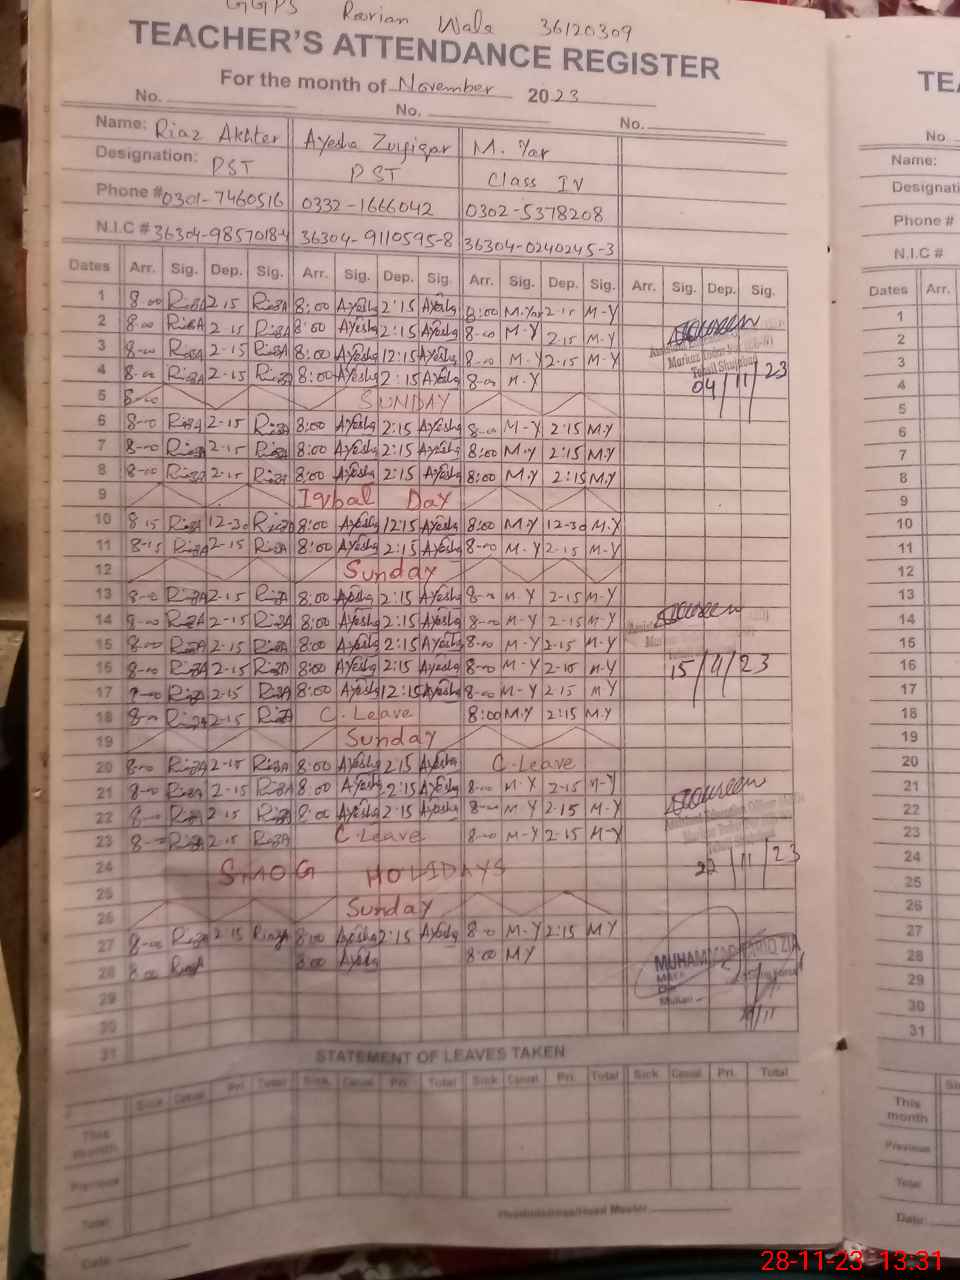 GGPS Ravian Wala 36120309
TEACHER'S ATTENDANCE REGISTER
For the month of November 2023
No. No. No.
Name: Riaz Akhter Ayesha Zulfiqar M. Yar
Designation: PST PST Class IV
Phone # 0301-7460516 0332-1666042 0302-5378208
N.I.C # 36304-9110595-8 36304-0240245-3
Dates Arr. Sig. Dep. Sig. Arr. Sig. Dep. Sig. Arr. Sig. Dep. Sig. Arr. Sig. Dep. Sig.
1 8-00 RiazA 2-15 RiazA 8:00 Ayesha 2:15 Ayesha 8:00 M.Yar 2-15 M-Y
2 8-00 RiazA 2-15 RiazA 8:00 Ayesha 2:15 Ayesha 8-00 M-Y 2-15 M-Y
3 8-00 RiazA 2-15 RiazA 8:00 Ayesha 12:15 Ayesha 8-00 M-Y 2-15 M-Y
4 8-00 RiazA 2-15 RiazA 8:00 Ayesha 2:15 Ayesha 8-00 M-Y
04/11/23
5 8-00 SUNDAY
6 8-00 RiazA 2-15 RiazA 8:00 Ayesha 2:15 Ayesha 8-00 M-Y 2-15 M.Y
7 8-00 RiazA 2-15 RiazA 8:00 Ayesha 2:15 Ayesha 8:00 M.Y 2:15 M.Y
8 8-00 RiazA 2-15 RiazA 8:00 Ayesha 2:15 Ayesha 8:00 M.Y 2:15 M.Y
9 Iqbal Day
10 8-15 RiazA 12-30 RiazA 8:00 Ayesha 12:15 Ayesha 8:00 M.Y 12-30 M.Y
11 8-15 RiazA 2-15 RiazA 8:00 Ayesha 2:15 Ayesha 8-00 M-Y 2-15 M-Y
12 Sunday
13 8-00 RiazA 2-15 RiazA 8:00 Ayesha 2:15 Ayesha 8-00 M-Y 2-15 M-Y
14 8-00 RiazA 2-15 RiazA 8:00 Ayesha 2:15 Ayesha 8-00 M-Y 2-15 M-Y
15 8-00 RiazA 2-15 RiazA 8:00 Ayesha 2:15 Ayesha 8-00 M-Y 2-15 M-Y
16 8-00 RiazA 2-15 RiazA 8:00 Ayesha 2:15 Ayesha 8-00 M-Y 2-15 M-Y
15/11/23
17 8-00 RiazA 2-15 RiazA 8:00 Ayesha 12:15 Ayesha 8-00 M-Y 2-15 M-Y
18 8-00 RiazA 2-15 RiazA C.Leave 8:00 M.Y 2:15 M.Y
19 Sunday
20 8-00 RiazA 2-15 RiazA 8:00 Ayesha 2:15 Ayesha C.Leave
21 8-00 RiazA 2-15 RiazA 8:00 Ayesha 2:15 Ayesha 8-00 M-Y 2-15 M-Y
22 8-00 RiazA 2-15 RiazA 8:00 Ayesha 2-15 Ayesha 8-00 M-Y 2-15 M-Y
23 8-00 RiazA 2-15 RiazA C-Leave 8-00 M-Y 2-15 M-Y
24 SMOG HOLIDAYS
22/11/23
25
26 Sunday
27 8-00 RiazA 2:15 RiazA 8:00 Ayesha 2:15 Ayesha 8-0 M-Y 2:15 MY
28 8:00 RiazA 8:00 Ayesha 8:00 MY
MUHAMMAD TARIQ ZIA
29
30
31
STATEMENT OF LEAVES TAKEN
Sick Casual Pri. Total Sick Casual Pri. Total Sick Casual Pri. Total Sick Casual Pri. Total
This month
Previous
Total
Date
No.
Name:
Phone #
N.I.C #
Dates Arr.
1
2
3
4
5
6
7
8
9
10
11
12
13
14
15
16
17
18
19
20
21
22
23
24
25
26
27
28
29
30
31
This month
Previous
Total
Date:
28-11-23 13:31